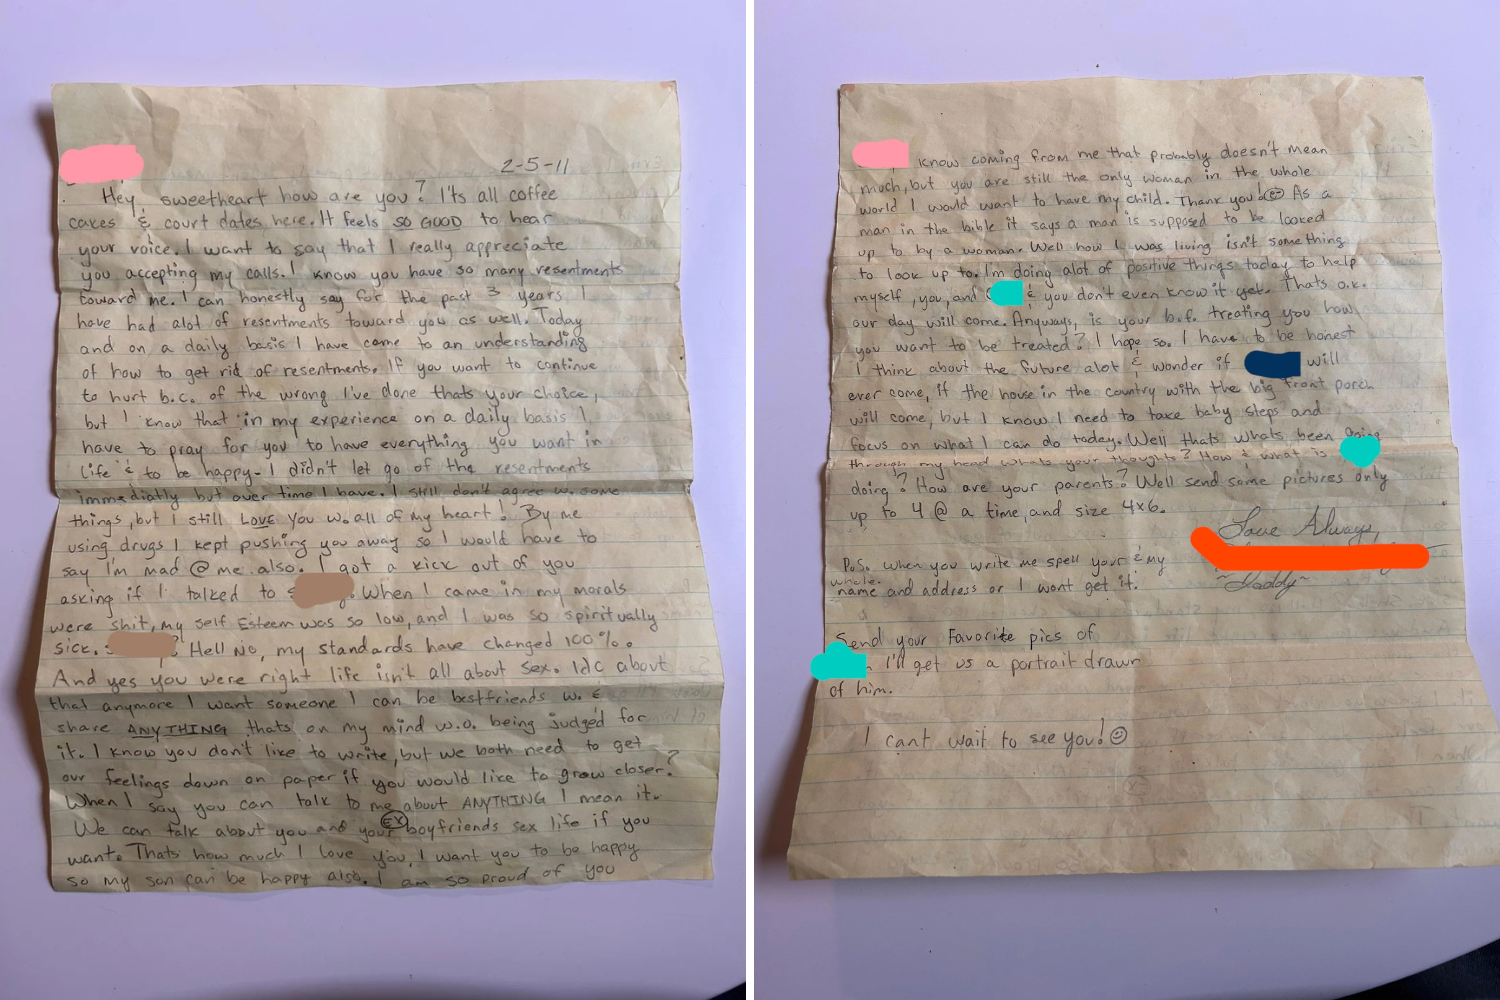 2-5-11
Hey, sweetheart how are you? I'ts all coffee
cakes & court dates here. It feels SO GOOD to hear
your voice. I want to say that I really appreciate
you accepting my calls. I know you have so many resentments
toward me. I can honestly say for the past 3 years I
have had alot of resentments toward you as well. Today
and on a daily basis I have come to an understanding
of how to get rid of resentments. If you want to continue
to hurt b.c. of the wrong I've done thats your choice,
but I know that in my experience on a daily basis I
have to pray for you to have everything you want in
life & to be happy. I didn't let go of the resentments
immediatly but over time I have. I still don't agree w. some
things, but I still LOVE YOU w. all of my heart! By me
using drugs I kept pushing you away so I would have to
say I'm mad @ me also. I got a kick out of you
asking if I talked to When I came in my morals
were shit, my self Esteem was so low, and I was so spiritually
sick. ? Hell No, my standards have changed 100%.
And yes you were right life isn't all about sex. Idc about
that anymore I want someone I can be bestfriends w. &
share ANYTHING thats on my mind w.o. being judged for
it. I know you don't like to write, but we both need to get
our feelings down on paper if you would like to grow closer?
When I say you can talk to me about ANYTHING I mean it.
We can talk about you and your EX boyfriends sex life if you
want. Thats how much I love you, I want you to be happy
so my son can be happy also. I am so proud of you
know coming from me that probably doesn't mean
much, but you are still the only woman in the whole
world I would want to have my child. Thank you! As a
man in the bible it says a man is supposed to be looked
up to by a woman. Well how I was living isn't something
to look up to. I'm doing alot of positive things today to help
myself, you, and & you don't even know it yet. Thats o.k.
our day will come. Anyways, is your b.f. treating you how
you want to be treated? I hope so. I have to be honest
I think about the future alot & wonder if will
ever come, if the house in the country with the big front porch
will come, but I know I need to take baby steps and
focus on what I can do today. Well thats whats been going
through my head whats your thoughts? How & what is
doing? How are your parents? Well send some pictures only
up to 4 @ a time, and size 4x6.
Love Always,
~Daddy~
P.S. when you write me spell your & my
whole
name and address or I wont get it.
Send your Favorite pics of
I'll get us a portrait drawn
of him.
I cant wait to see you!